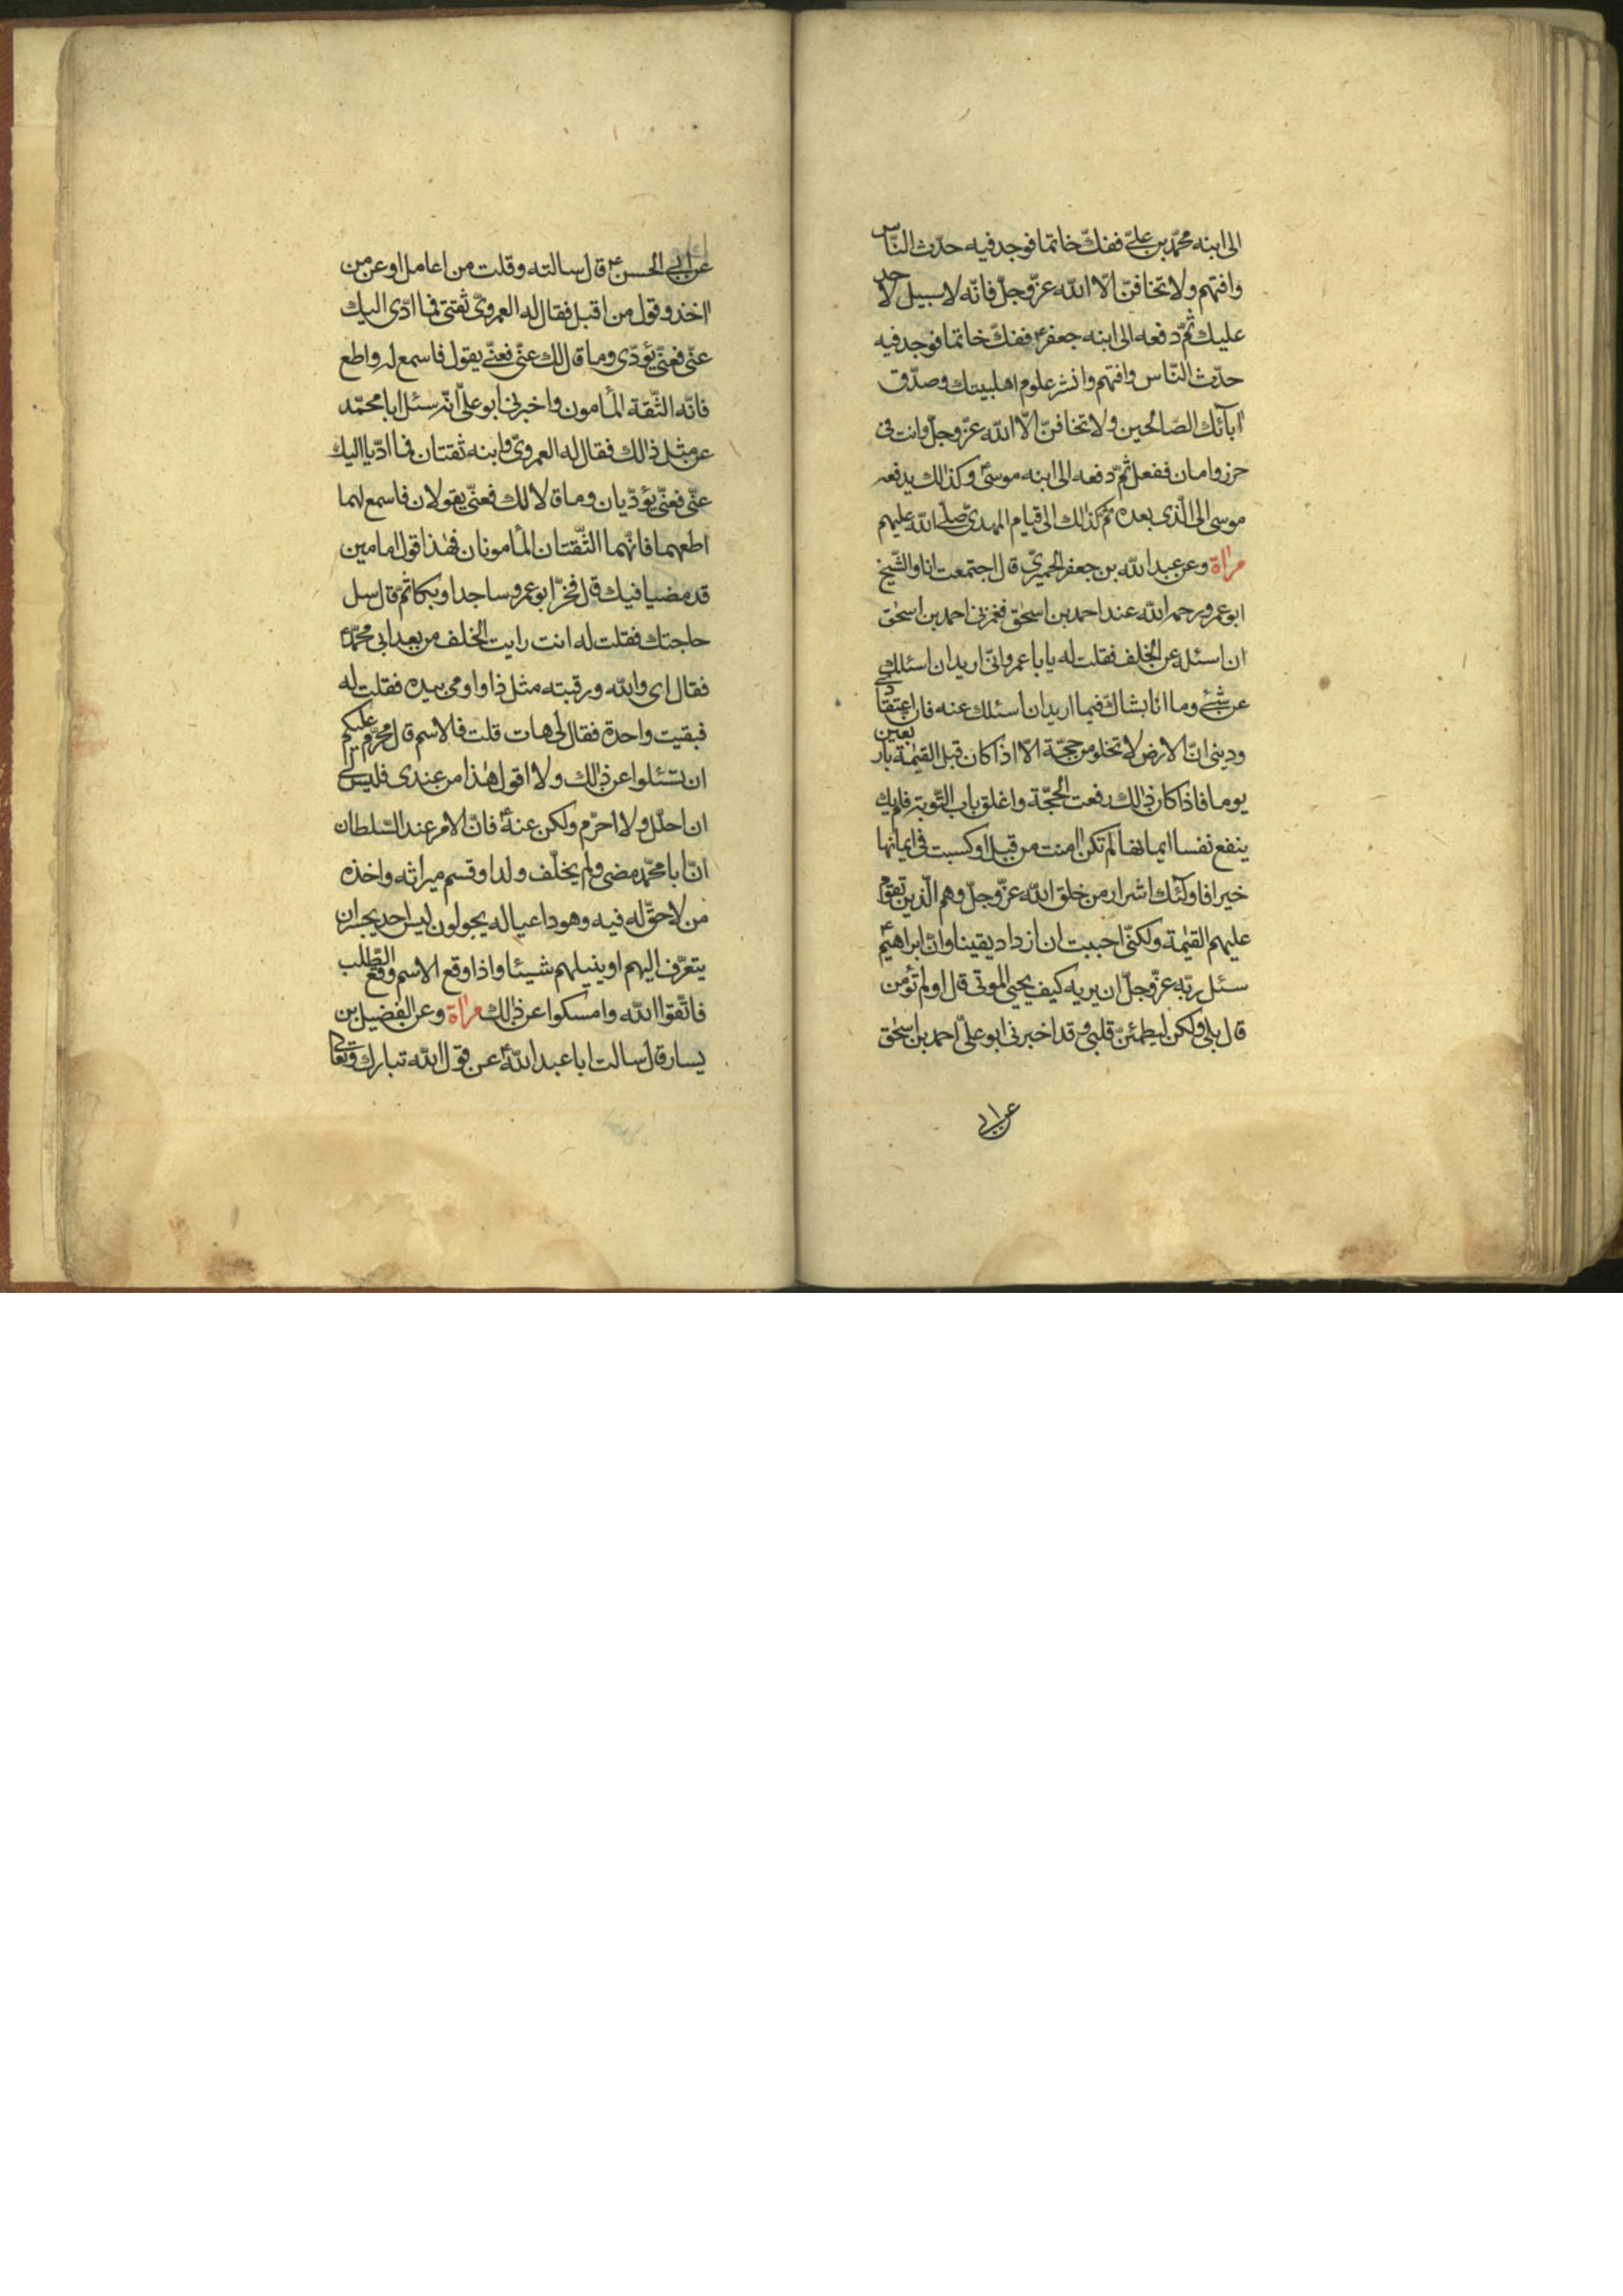 الى ابنه محمّد بن علىّ ففكّ خاتما فوجد فيه حدّث النّاس
وافتهم ولا تخافنّ الّا اللّه عزّ وجلّ فانّه لا سبيل لاحد
عليك ثمّ دفعه الى ابنه جعفرؑ ففكّ خاتما فوجد فيه
حدّث النّاس وافتهم وانشر علوم اهلبيتك وصدّق
آبآئك الصّالحين ولا تخافنّ الّا اللّه عزّ وجلّ وانت فى
حرز وامان ففعل ثمّ دفعه الى ابنه موسىؑ وكذالك يدفعه
موسى الى الّذى بعده ثمّ كذالك الى قيام المهدىّ صلّى اللّه عليهم
مراة وعن عبد اللّه بن جعفر الحميرىّ قال اجتمعت انا والشّيخ
ابو عمرو رحمه اللّه عند احمد بن اسحٰق فغمزنى احمد بن اسحٰق
ان اسئله عن الخلف فقلت له يا با عمرو انّى اريد ان اسئلك
عن شىء وما انا بشاكّ فيما اريد ان اسئلك عنه فان اعتقادى
ودينى انّ الارض لا تخلو من حجّة الّا اذا كان قبل القيٰمة باربعين
يوما فاذا كان ذٰلك رفعت الحجّة واغلق باب التّوبة فلم يك
ينفع نفسا ايمانها لم تكن اٰمنت من قبل او كسبت فى ايمانها
خيرا فاولٓئك اشرار من خلق اللّه عزّ وجلّ وهم الّذين تقوم
عليهم القيٰمة ولكنّى احببت ان ازداد يقينا وانّ ابراهيمؑ
سئل ربّه عزّ وجلّ ان يريه كيف يحيى الموتى قال اولم تؤمن
قال بلى ولكن ليطمئنّ قلبى وقد اخبرنى ابو علىّ احمد بن اسحٰق
عن ابى
عن ابى الحسنؑ قال سالته وقلت من اعامل او عن من
اٰخذ وقول من اقبل فقال له العمروىّ ثقتى فما ادّى اليك
عنّى فعنّى يؤدّى وما قال لك عنّى فعنّى يقول فاسمع له واطع
فانّه الثّقة المأمون واخبرنى ابو علىّ انّه سئل ابا محمّد
عن مثل ذٰلك فقال له العمروىّ وابنه ثقتان فما ادّيا اليك
عنّى فعنّى يؤدّيان وما قالا لك فعنّى يقولان فاسمع لهما
اطعهما فانّهما الثّقتان المأمونان فهٰذا قول امامين
قد مضيا فيك قال فخرّ ابو عمرو ساجدا وبكا ثمّ قال سل
حاجتك فقلت له انت رايت الخلف من بعد ابى محمّدؑ
فقال اى واللّه ورقبته مثل ذا واومى بيده فقلت له
فبقيت واحدة فقال لى هات قلت فالاسم قال محرّم عليكم
ان تسئلوا عن ذٰلك ولا اقول هٰذا من عندى فليس لى
ان احلّل ولا احرّم ولكن عنهؑ فانّ الامر عند السّلطان
انّ ابا محمّد مضى ولم يخلّف ولدا وقسم ميراثه واخذه
من لا حقّ له فيه وهوذا عياله يجولون ليس احد يجسر ان
يتعرّف اليهم او ينيلهم شيئا واذا وقع الاسم وقع الطّلب
فاتّقوا اللّه وامسكوا عن ذٰلك مراة وعن الفضيل بن
يسار قال سالت ابا عبد اللّهؑ عن قول اللّه تبارك وتعالى